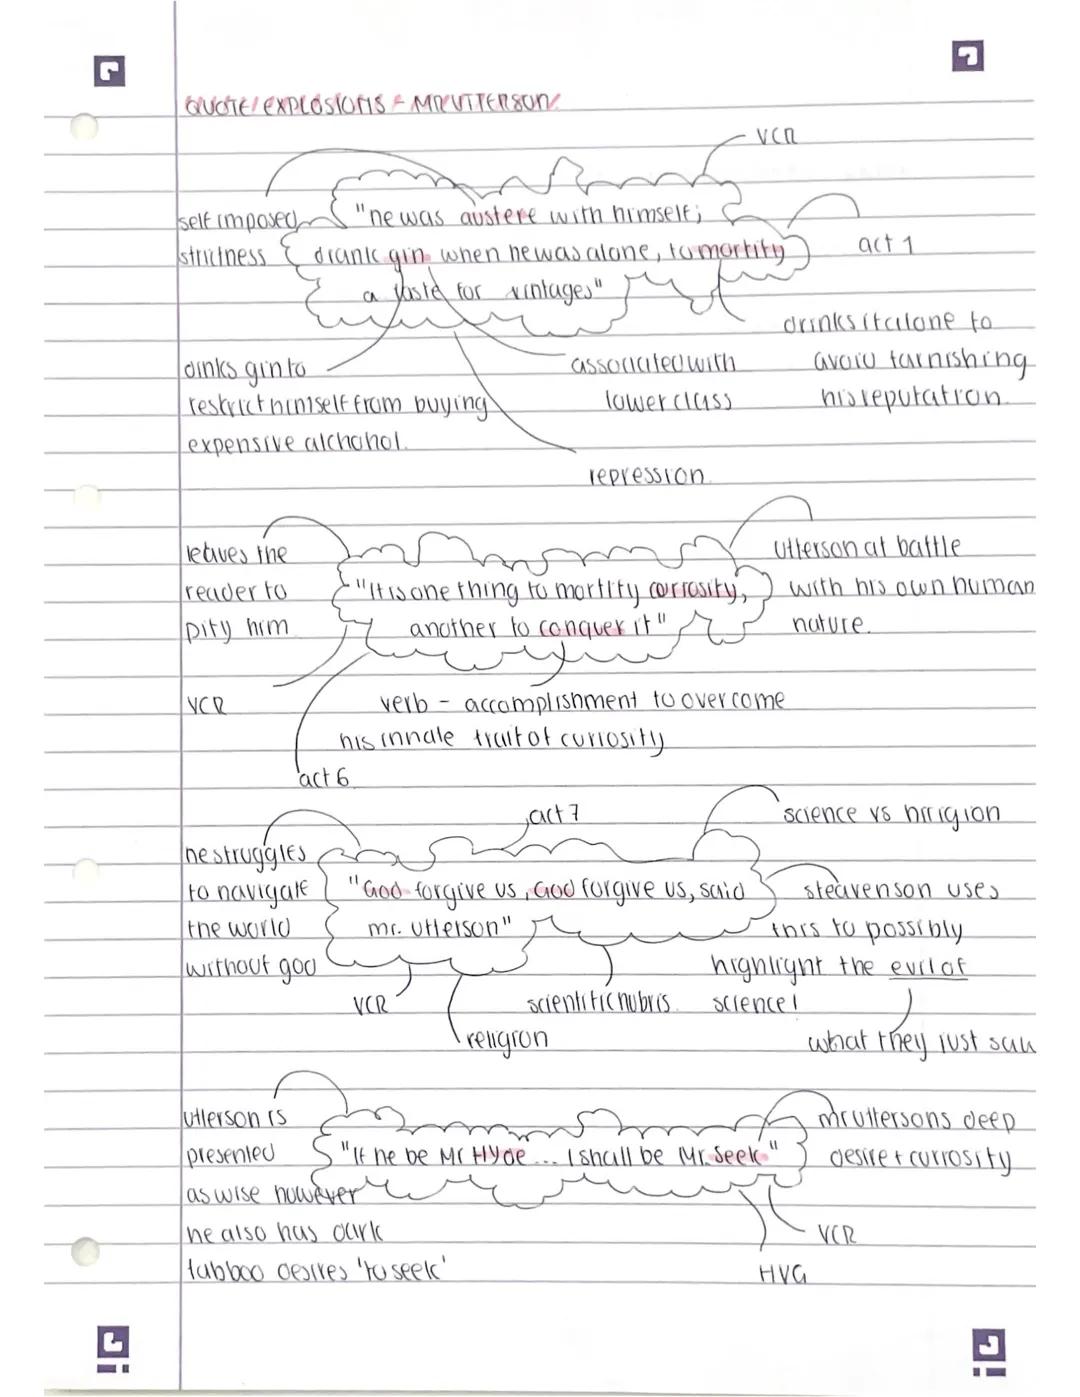 QUOTE EXPLOSIONS - MR UTTERSON
VCR
self imposed
strictness
"he was austere with himself;
drank gin when he was alone, to mortify
a taste for vintages"
act 1
drinks it alone to
avoid tarnishing
his reputation.
dinks gin to
restrict himself from buying
expensive alchohol.
associated with
lower class
repression.
leaves the
reader to
pity him
"It is one thing to mortify corrosity,
another to conquer it"
Utterson at battle
with his own human
nature.
VCR
verb - accomplishment to overcome
his innate trait of curiosity
act 6
act 7
science vs
he struggles
to navigate
the world
without god
"God forgive us, God forgive us, said
mr. Utterson"
steavenson uses
this to possibly
highlight the evil of
science!
VCR
scientific hubris.
religion
what they just saw
Utterson is
presented
as wise however
he also has dark
tabboo desires 'to seek'
"If he be Mr Hyde... I shall be Mr. Seek"
mr uttersons deep
desire + curiosity
VCR
HVG